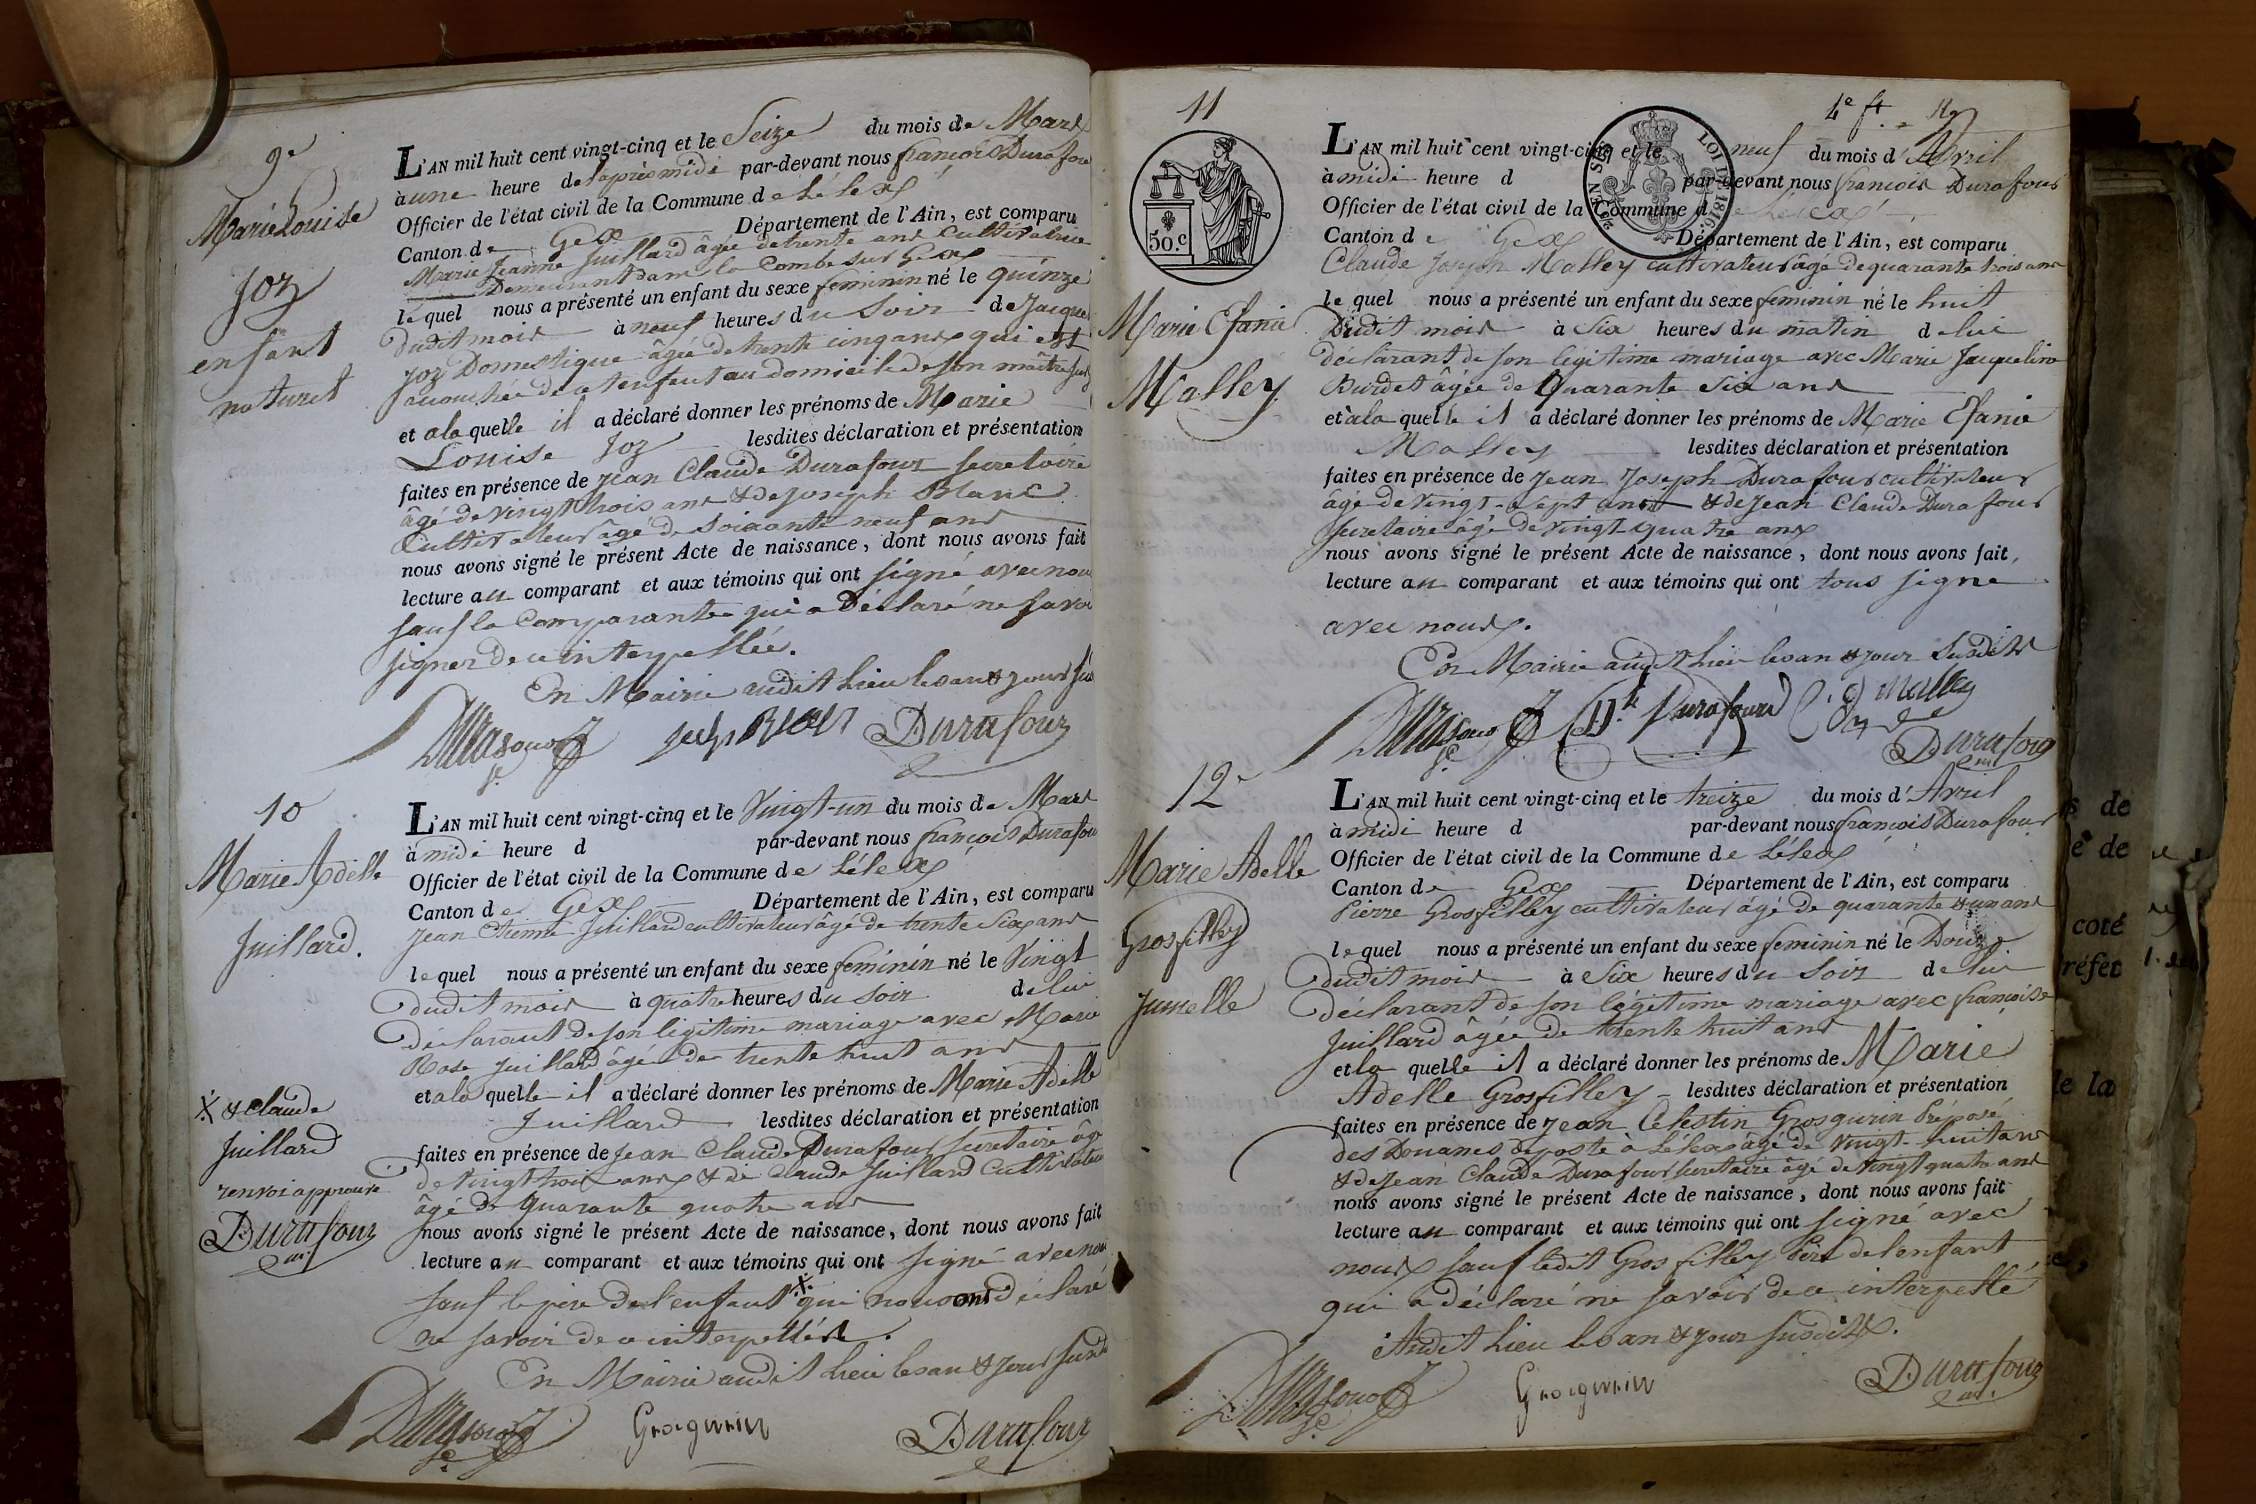 9e
Marie Louise
Joz
enfant
naturel
L'AN mil huit cent vingt-cinq et le Seize du mois de Mars
à une heure de laprès midi par-devant nous françois Durafour
Officier de l'état civil de la Commune de Lélex
Canton de Gex Département de l'Ain, est comparu
Marie Jeanne Juillard âgée de trente ans cultivatrice
Demeurant dans la Combe sur Gex
lequel nous a présenté un enfant du sexe feminin né le quinze
dudit mois à neuf heures du Soir de Jacque
Joz Domestique âgée de trente cinq ans qui est
accouchée de cet enfent au domicile de son maître
et a la quelle il a déclaré donner les prénoms de Marie
Louise Joz lesdites déclaration et présentation
faites en présence de Jean Claude Durafour secretaire
âgé de vingt trois ans & de Joseph Blanc
Cultivateur âgé de soixante neuf ans
nous avons signé le présent Acte de naissance, dont nous avons fait
lecture au comparant et aux témoins qui ont signé avec nou
sauf la Comparante qui a Déclaré ne savoi
signer de ce interpellée.
En Mairie audit lieu les an & jour su
Joseph Blanc Durafour
10
Marie Adelle
Juillard.
X & Claude
Juillard
renvoi approuvé
Durafour
L'AN mil huit cent vingt-cinq et le Vingt-un du mois de Mars
à midi heure d par-devant nous françois Durafour
Officier de l'état civil de la Commune de Lélex
Canton de Gex Département de l'Ain, est comparu
Jean Etienne Juillard cultivateur âgé de trente Six ans
lequel nous a présenté un enfant du sexe feminin né le Vingt
dudit mois à quatre heures du soir de lui
Déclarant de son légitime mariage avec Marie
Rose Juillard âgée de trente huit ans
et a la quelle il a déclaré donner les prénoms de Marie Adelle
Juillard lesdites déclaration et présentation
faites en présence de Jean Claude Durafour secretaire âgé
de vingt trois ans & de Claude Juillard Cultivateur
âgé de quarante quatre ans
nous avons signé le présent Acte de naissance, dont nous avons fait
lecture au comparant et aux témoins qui ont signé avec nou
sauf le père de l'enfant X qui nous ont déclaré
ne savoir de ce interpellés.
En Mairie audit lieu les an & jour susd
Grosgurin Durafour
11
50 c
Marie Efanie
Malley
4e ft.
LOI DE 1816.
L'AN mil huit cent vingt-cinq et le neuf du mois d'Avril
à midi heure d par-devant nous françois Durafour
Officier de l'état civil de la Commune de Lélex
Canton de Gex Département de l'Ain, est comparu
Claude Joseph Malley cultivateur âgé de quarante trois ans
lequel nous a présenté un enfant du sexe feminin né le huit
Dudit mois à Six heures du matin de lui
déclarant de son légitime mariage avec Marie Jacqueline
Burdet âgée de Quarante Six ans
et a la quelle il a déclaré donner les prénoms de Marie Efanie
Malley lesdites déclaration et présentation
faites en présence de Jean Joseph Durafour cultivateur
âgé de vingt-sept ans & de Jean Claude Durafour
secretaire âgé de vingt-quatre ans
nous avons signé le présent Acte de naissance, dont nous avons fait
lecture au comparant et aux témoins qui ont tous signé
avec nous.
En Mairie audit lieu les an & jour Susdits
Durafour Malley
Durafour
12
Marie Adelle
Grosfilley
Jumelle
L'AN mil huit cent vingt-cinq et le treize du mois d'Avril
à midi heure d par-devant nous françois Durafour
Officier de l'état civil de la Commune de Lélex
Canton de Gex Département de l'Ain, est comparu
Pierre Grosfilley cultivateur âgé de quarante & un ans
lequel nous a présenté un enfant du sexe feminin né le Douze
dudit mois à Six heures du Soir de lui
déclarant de son légitime mariage avec françoise
Juillard âgée de trente huit ans
et la quelle il a déclaré donner les prénoms de Marie
Adelle Grosfilley lesdites déclaration et présentation
faites en présence de Jean Célestin Grosgurin Préposé
des Douanes de poste à Lélex âgé de vingt-huit ans
& de Jean Claude Durafour secretaire âgé de vingt quatre ans
nous avons signé le présent Acte de naissance, dont nous avons fait
lecture au comparant et aux témoins qui ont signé avec
nous sauf ledit Grosfilley Père de l'enfant
qui a déclaré ne savoir de ce interpellé
Audit lieu les an & jour susdits.
Grosgurin Durafour
de
de
coté
réfet
de la